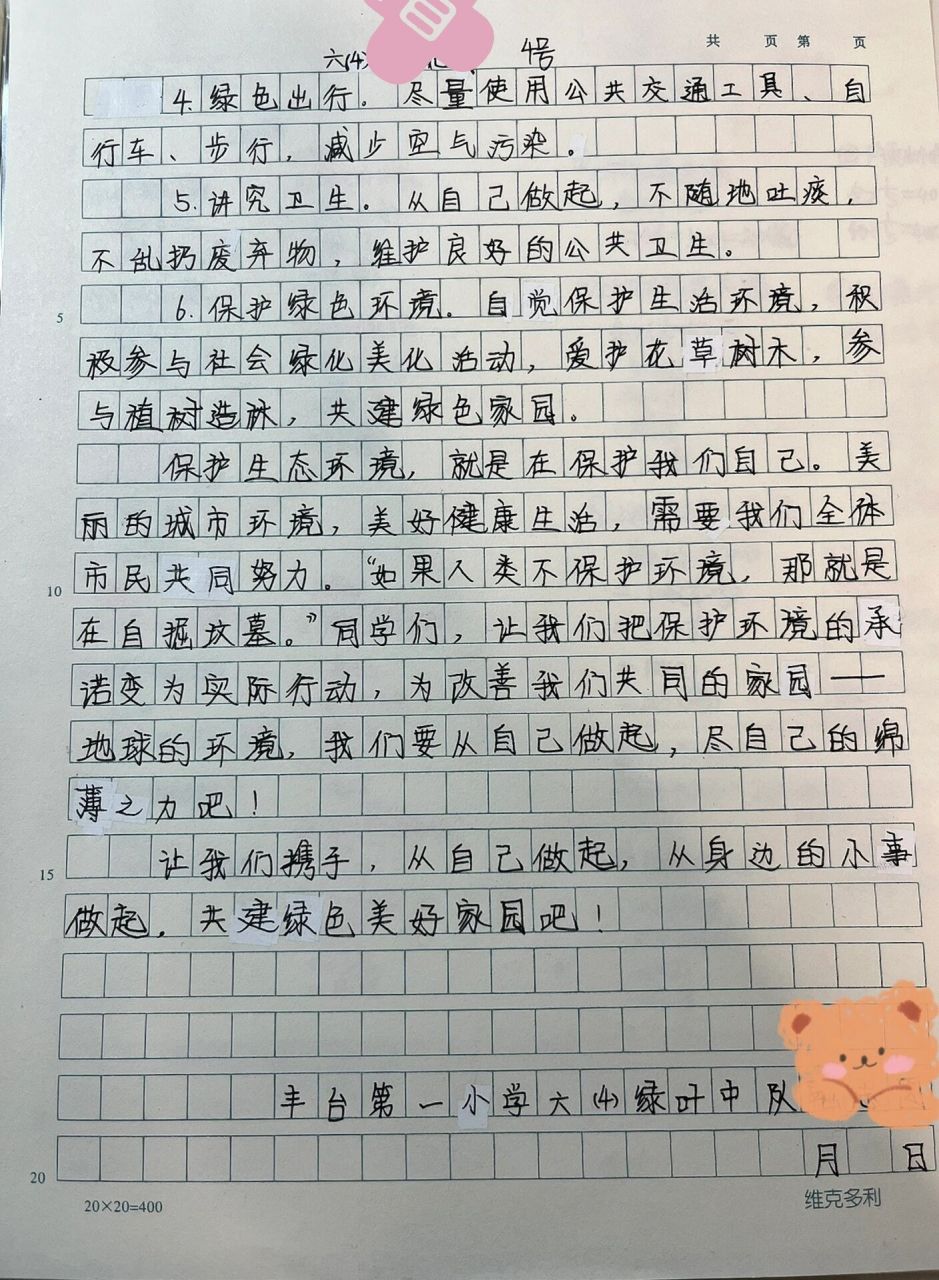 共 页 第 页
六(4) 4号
4.绿色出行。尽量使用公共交通工具、自
行车、步行,减少空气污染。
5.讲究卫生。从自己做起,不随地吐痰,
不乱扔废弃物,维护良好的公共卫生。
5 6.保护绿色环境。自觉保护生活环境,积
极参与社会绿化美化活动,爱护花草树木,参
与植树造林,共建绿色家园。
保护生态环境,就是在保护我们自己。美
丽的城市环境,美好健康生活,需要我们全体
10 市民共同努力。“如果人类不保护环境,那就是
在自掘坟墓。”同学们,让我们把保护环境的承
诺变为实际行动,为改善我们共同的家园——
地球的环境,我们要从自己做起,尽自己的绵
薄之力吧!
15 让我们携手,从自己做起,从身边的小事
做起,共建绿色美好家园吧!
丰台第一小学六(4)绿叶中队
20 月 日
20×20=400 维克多利